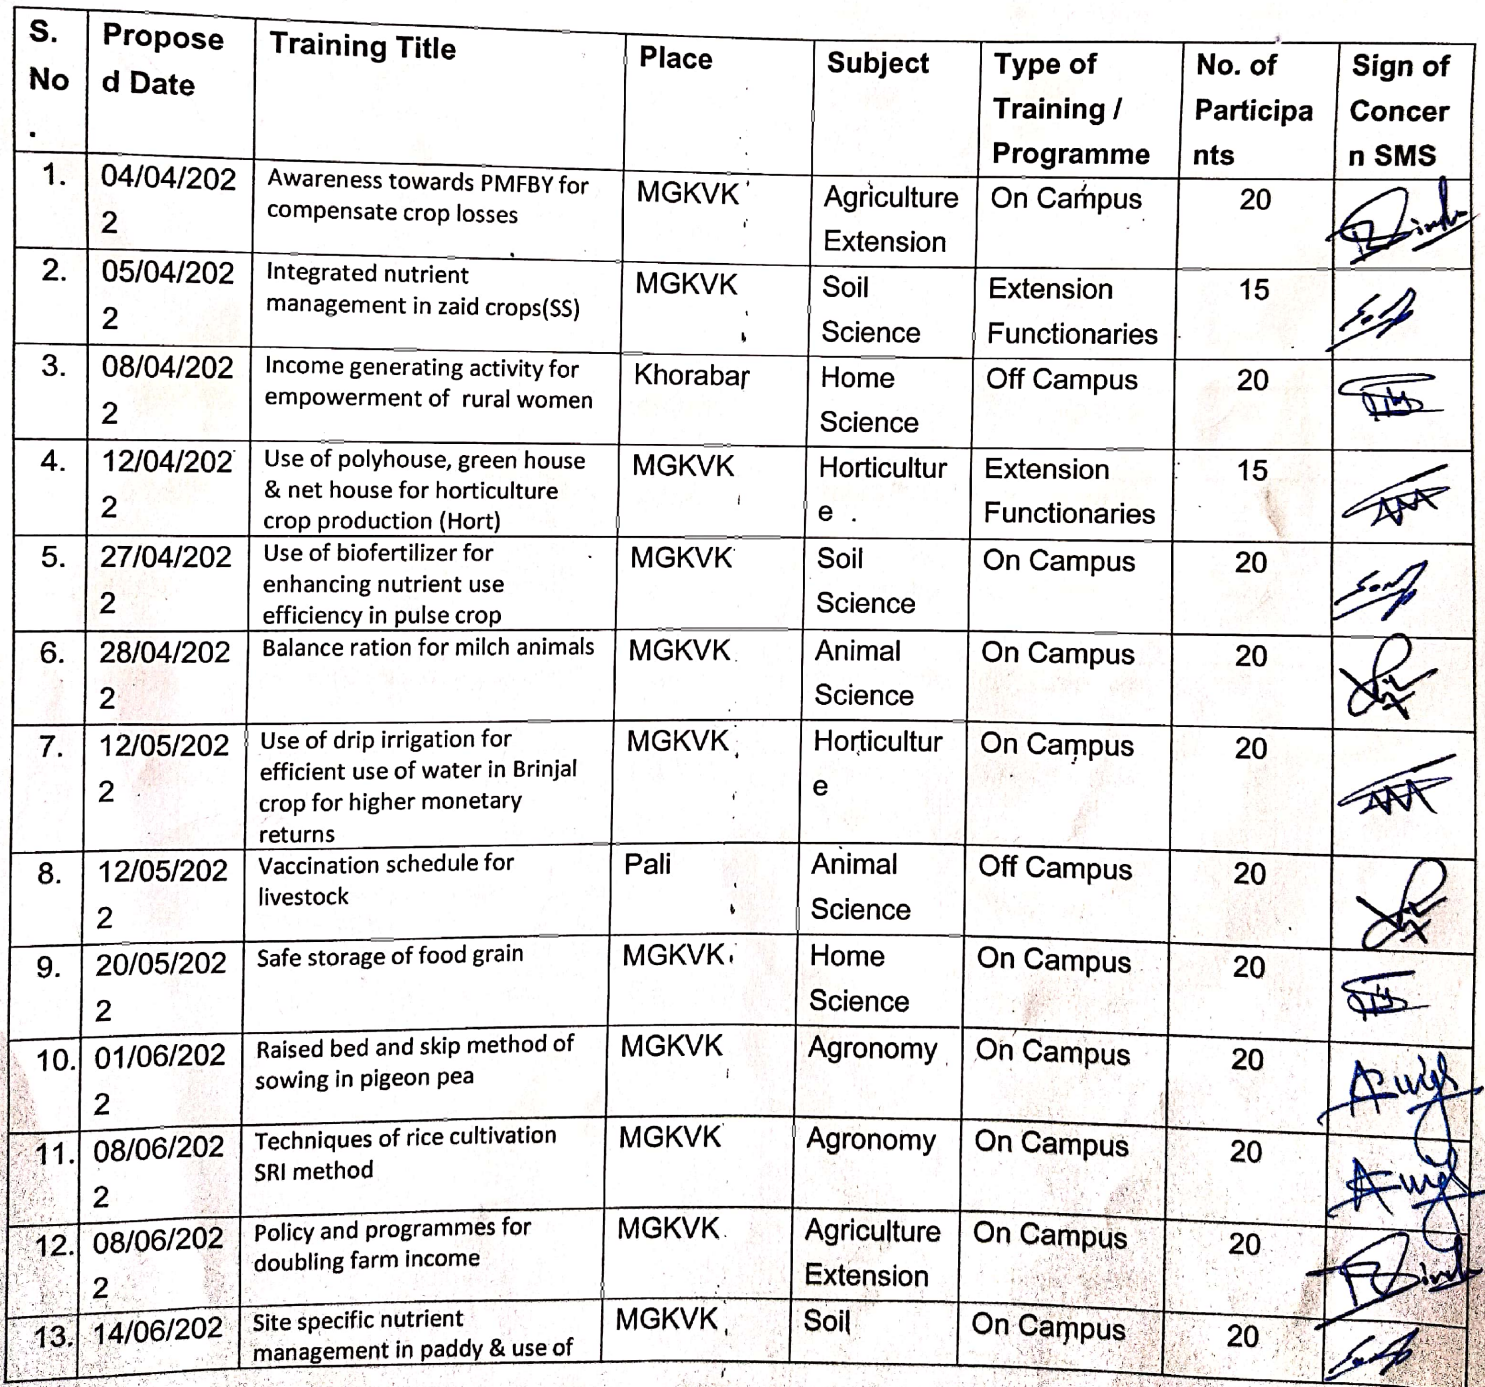 S. No . Propose d Date Training Title Place Subject Type of Training / Programme No. of Participa nts Sign of Concer n SMS
1. 04/04/202 2 Awareness towards PMFBY for compensate crop losses MGKVK Agriculture Extension On Campus 20
2. 05/04/202 2 Integrated nutrient management in zaid crops(SS) MGKVK Soil Science Extension Functionaries 15
3. 08/04/202 2 Income generating activity for empowerment of rural women Khorabar Home Science Off Campus 20
4. 12/04/202 2 Use of polyhouse, green house & net house for horticulture crop production (Hort) MGKVK Horticultur e . Extension Functionaries 15
5. 27/04/202 2 Use of biofertilizer for enhancing nutrient use efficiency in pulse crop MGKVK Soil Science On Campus 20
6. 28/04/202 2 Balance ration for milch animals MGKVK Animal Science On Campus 20
7. 12/05/202 2 Use of drip irrigation for efficient use of water in Brinjal crop for higher monetary returns MGKVK Horticultur e On Campus 20
8. 12/05/202 2 Vaccination schedule for livestock Pali Animal Science Off Campus 20
9. 20/05/202 2 Safe storage of food grain MGKVK Home Science On Campus 20
10. 01/06/202 2 Raised bed and skip method of sowing in pigeon pea MGKVK Agronomy On Campus 20
11. 08/06/202 2 Techniques of rice cultivation SRI method MGKVK Agronomy On Campus 20
12. 08/06/202 2 Policy and programmes for doubling farm income MGKVK Agriculture Extension On Campus 20
13. 14/06/202 Site specific nutrient management in paddy & use of MGKVK Soil On Campus 20